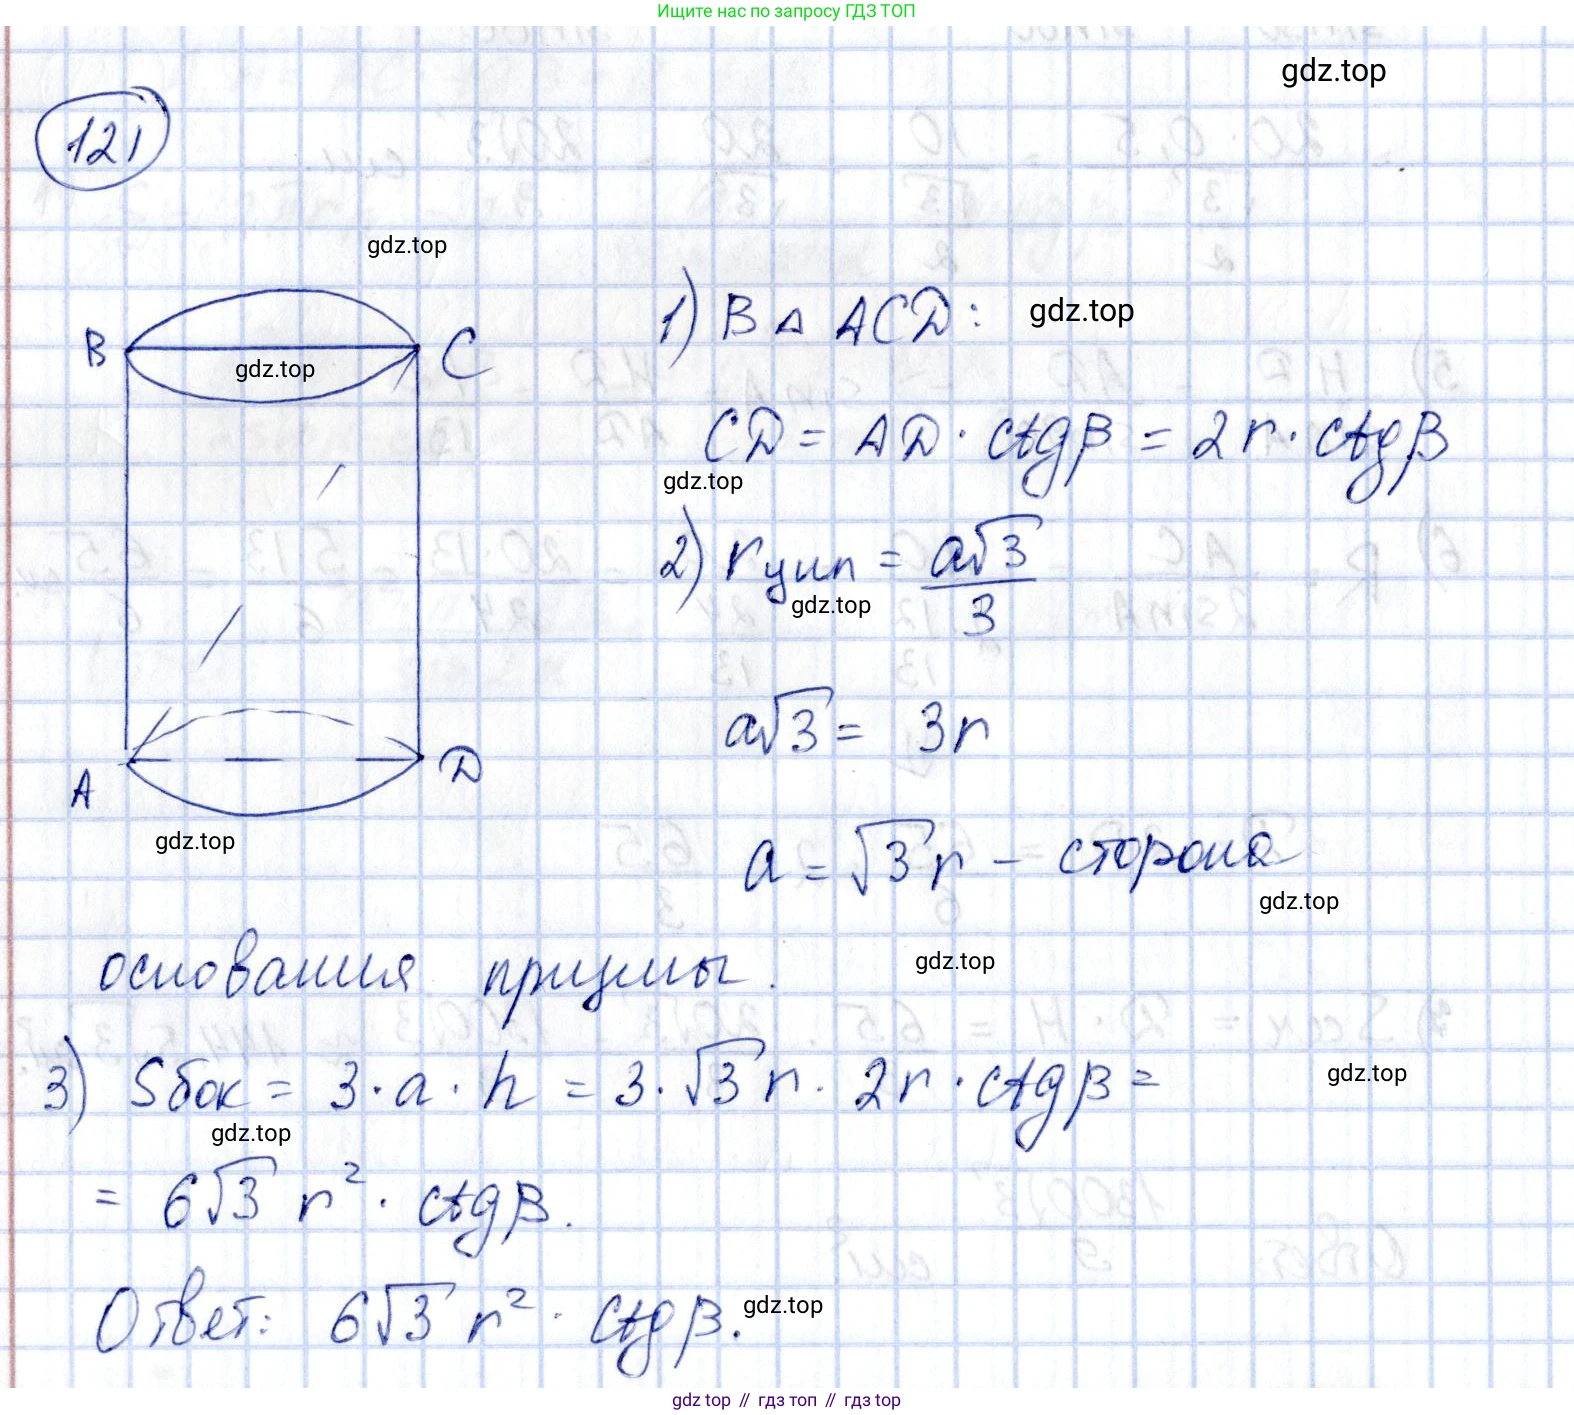 Ищите нас по запросу ГДЗ ТОП
gdz.top
121
gdz.top
B
C
gdz.top
A
D
gdz.top
1) В △ ACD: gdz.top
CD = AD · ctgβ = 2r · ctgβ
gdz.top
2) rцил = a√3/3
gdz.top
a√3 = 3r
a = √3 r – сторона
gdz.top
основания призмы.
gdz.top
3) Sбок = 3 · a · h = 3 · √3 r · 2r · ctgβ =
gdz.top
gdz.top
= 6√3 r² · ctgβ.
Ответ: 6√3 r² · ctgβ.
gdz.top
gdz top // гдз топ // гдз top